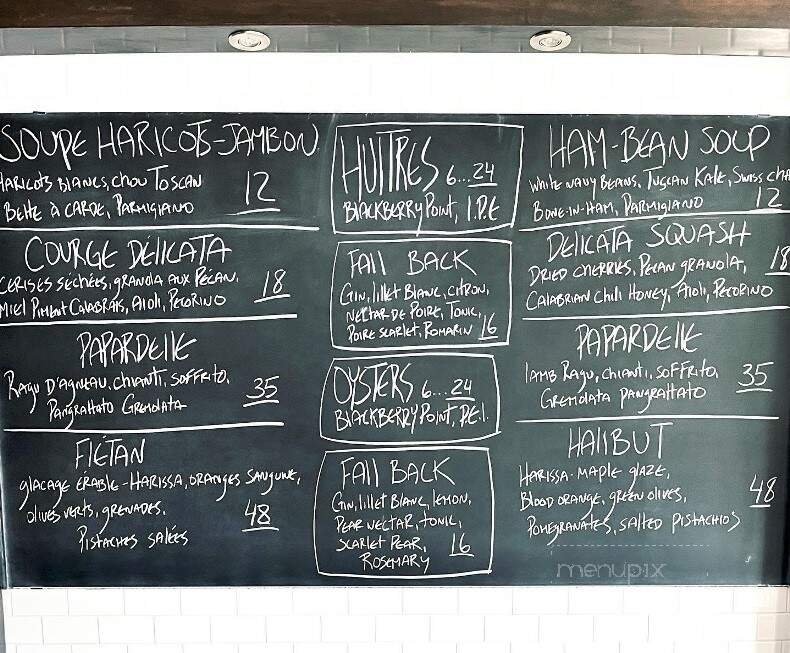 SOUPE HARICOTS-JAMBON
HARICOTS BLANCS, CHOU TOSCAN
BETTE À CARDE, PARMIGIANO
12
COURGE DELICATA
CERISES SÉCHÉES, GRANOLA AUX PECAN,
MIEL PIMENT CALABRAIS, AIOLI, PECORINO
18
PAPARDELLE
RAGU D'AGNEAU, CHIANTI, SOFFRITO,
PANGRATTATO GREMOLATA
35
FLÉTAN
GLACAGE ÉRABLE-HARISSA, ORANGES SANGUINE,
OLIVES VERTS, GRENADES,
PISTACHES SALÉES
48
HUITRES 6...24
BLACKBERRY POINT, I.P.E
FALL BACK
GIN, LILLET BLANC, CITRON,
NECTAR DE POIRE, TONIC,
POIRE SCARLET, ROMARIN 16
OYSTERS 6...24
BLACKBERRY POINT, P.E.I.
FALL BACK
GIN, LILLET BLANC, LEMON,
PEAR NECTAR, TONIC,
SCARLET PEAR,
ROSEMARY
16
HAM-BEAN SOUP
WHITE NAVY BEANS, TUSCAN KALE, SWISS CHA
BONE-IN-HAM, PARMIGIANO
12
DELICATA SQUASH
DRIED CHERRIES, PECAN GRANOLA,
CALABRIAN CHILI HONEY, AIOLI, PECORINO
18
PAPARDELLE
LAMB RAGU, CHIANTI, SOFFRITO,
GREMOLATA PANGRATTATO
35
HALIBUT
HARISSA-MAPLE GLAZE,
BLOOD ORANGE, GREEN OLIVES,
POMEGRANATES, SALTED PISTACHIOS
48
menupix